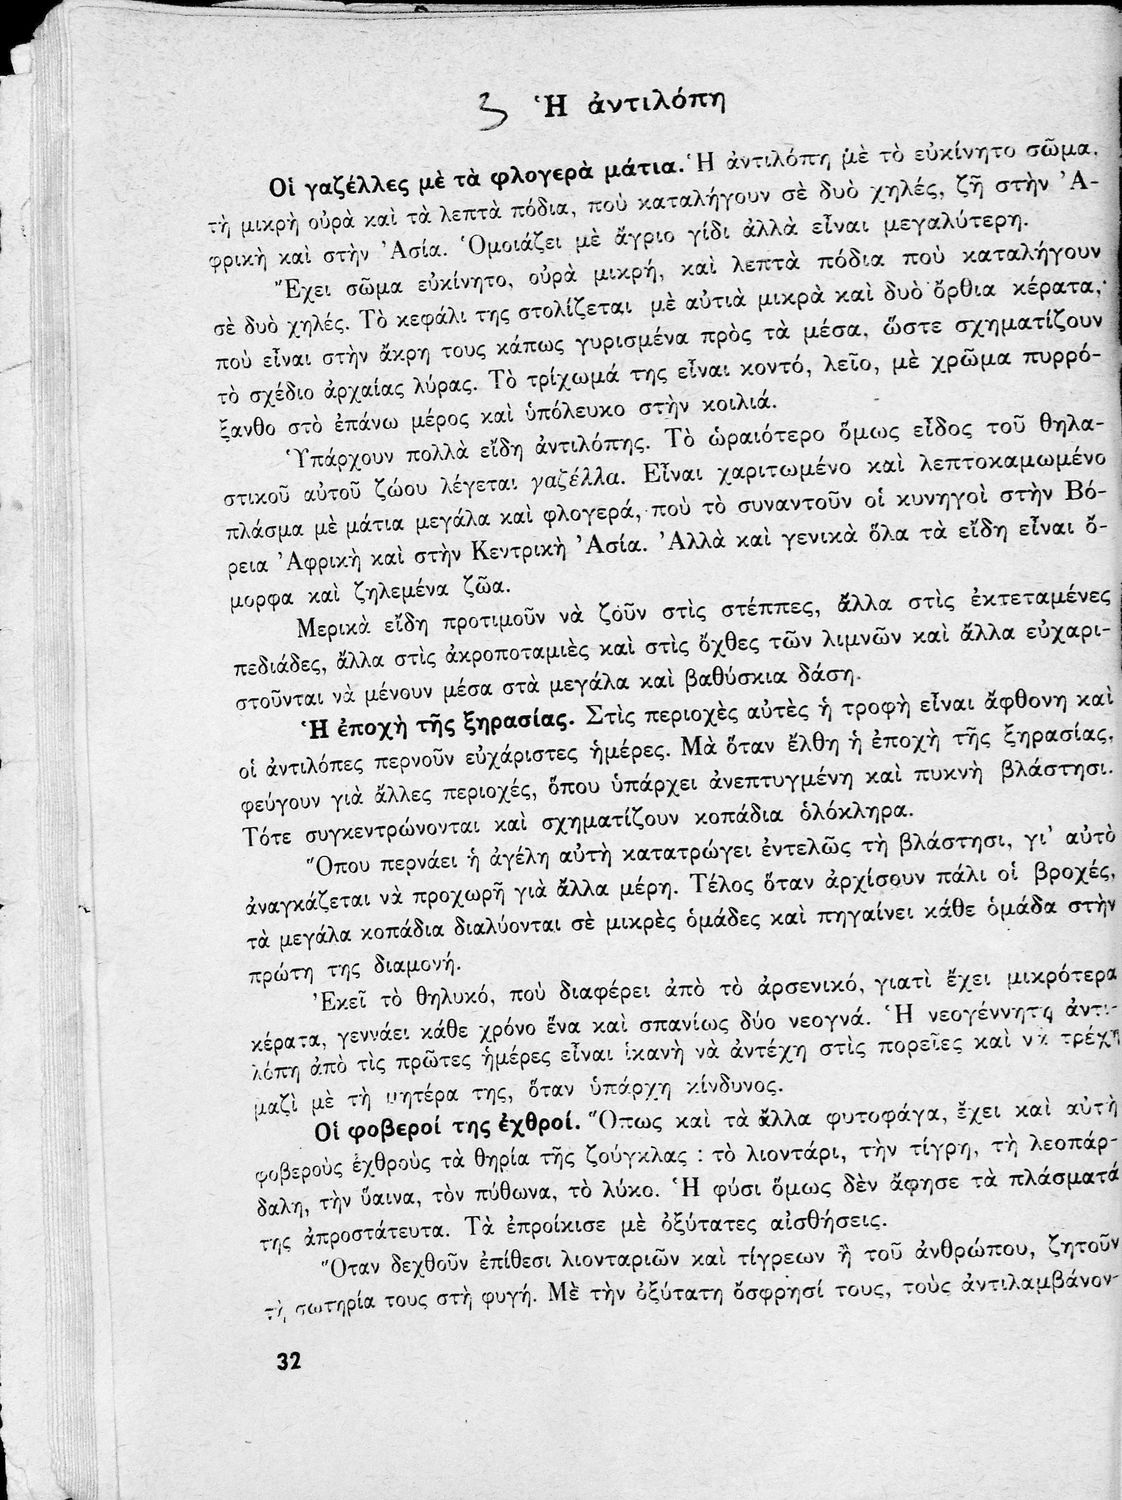 3 Ἡ ἀντιλόπη
Οἱ γαζέλλες μὲ τὰ φλογερὰ μάτια. Ἡ ἀντιλόπη μὲ τὸ εὐκίνητο σῶμα,
τὴ μικρὴ οὐρὰ καὶ τὰ λεπτὰ πόδια, ποὺ καταλήγουν σὲ δυὸ χηλές, ζῆ στὴν Ἀ-
φρικὴ καὶ στὴν Ἀσία. Ὁμοιάζει μὲ ἄγριο γίδι ἀλλὰ εἶναι μεγαλύτερη.
Ἔχει σῶμα εὐκίνητο, οὐρὰ μικρή, καὶ λεπτὰ πόδια ποὺ καταλήγουν
σὲ δυὸ χηλές. Τὸ κεφάλι της στολίζεται μὲ αὐτιὰ μικρὰ καὶ δυὸ ὄρθια κέρατα,
ποὺ εἶναι στὴν ἄκρη τους κάπως γυρισμένα πρὸς τὰ μέσα, ὥστε σχηματίζουν
τὸ σχέδιο ἀρχαίας λύρας. Τὸ τρίχωμά της εἶναι κοντό, λεῖο, μὲ χρῶμα πυρρό-
ξανθο στὸ ἐπάνω μέρος καὶ ὑπόλευκο στὴν κοιλιά.
Ὑπάρχουν πολλὰ εἴδη ἀντιλόπης. Τὸ ὡραιότερο ὅμως εἶδος τοῦ θηλα-
στικοῦ αὐτοῦ ζώου λέγεται γαζέλλα. Εἶναι χαριτωμένο καὶ λεπτοκαμωμένο
πλάσμα μὲ μάτια μεγάλα καὶ φλογερά, ποὺ τὸ συναντοῦν οἱ κυνηγοὶ στὴν Βό-
ρεια Ἀφρικὴ καὶ στὴν Κεντρικὴ Ἀσία. Ἀλλὰ καὶ γενικὰ ὅλα τὰ εἴδη εἶναι ὄ-
μορφα καὶ ζηλεμένα ζῶα.
Μερικὰ εἴδη προτιμοῦν νὰ ζοῦν στὶς στέππες, ἄλλα στὶς ἐκτεταμένες
πεδιάδες, ἄλλα στὶς ἀκροποταμιὲς καὶ στὶς ὄχθες τῶν λιμνῶν καὶ ἄλλα εὐχαρι-
στοῦνται νὰ μένουν μέσα στὰ μεγάλα καὶ βαθύσκια δάση.
Ἡ ἐποχὴ τῆς ξηρασίας. Στὶς περιοχὲς αὐτὲς ἡ τροφὴ εἶναι ἄφθονη καὶ
οἱ ἀντιλόπες περνοῦν εὐχάριστες ἡμέρες. Μὰ ὅταν ἔλθη ἡ ἐποχὴ τῆς ξηρασίας,
φεύγουν γιὰ ἄλλες περιοχές, ὅπου ὑπάρχει ἀνεπτυγμένη καὶ πυκνὴ βλάστησι.
Τότε συγκεντρώνονται καὶ σχηματίζουν κοπάδια ὁλόκληρα.
Ὅπου περνάει ἡ ἀγέλη αὐτὴ κατατρώγει ἐντελῶς τὴ βλάστησι, γι' αὐτὸ
ἀναγκάζεται νὰ προχωρῆ γιὰ ἄλλα μέρη. Τέλος ὅταν ἀρχίσουν πάλι οἱ βροχές,
τὰ μεγάλα κοπάδια διαλύονται σὲ μικρὲς ὁμάδες καὶ πηγαίνει κάθε ὁμάδα στὴν
πρώτη της διαμονή.
Ἐκεῖ τὸ θηλυκό, ποὺ διαφέρει ἀπὸ τὸ ἀρσενικό, γιατὶ ἔχει μικρότερα
κέρατα, γεννάει κάθε χρόνο ἕνα καὶ σπανίως δύο νεογνά. Ἡ νεογέννητη ἀντι-
λόπη ἀπὸ τὶς πρῶτες ἡμέρες εἶναι ἱκανὴ νὰ ἀντέχη στὶς πορεῖες καὶ νὰ τρέχη
μαζὶ μὲ τὴ μητέρα της, ὅταν ὑπάρχη κίνδυνος.
Οἱ φοβεροί της ἐχθροί. Ὅπως καὶ τὰ ἄλλα φυτοφάγα, ἔχει καὶ αὐτὴ
φοβεροὺς ἐχθροὺς τὰ θηρία τῆς ζούγκλας : τὸ λιοντάρι, τὴν τίγρη, τὴ λεοπάρ-
δαλη, τὴν ὕαινα, τὸν πύθωνα, τὸ λύκο. Ἡ φύσι ὅμως δὲν ἄφησε τὰ πλάσματά
της ἀπροστάτευτα. Τὰ ἐπροίκισε μὲ ὀξύτατες αἰσθήσεις.
Ὅταν δεχθοῦν ἐπίθεσι λιονταριῶν καὶ τίγρεων ἢ τοῦ ἀνθρώπου, ζητοῦν
τὴ σωτηρία τους στὴ φυγή. Μὲ τὴν ὀξύτατη ὄσφρησί τους, τοὺς ἀντιλαμβάνον-
32